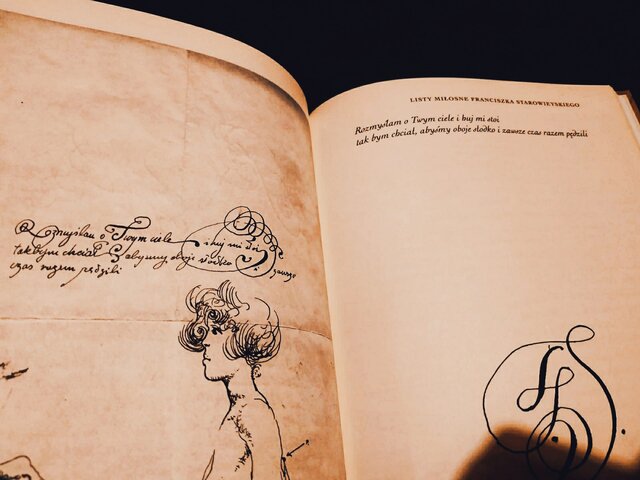 Rozmyślam o Twym ciele i huj mi stoi
tak bym chciał abyśmy oboje słodko i zawsze
czas razem pędzili
LISTY MIŁOSNE FRANCISZKA STAROWIEYSKIEGO
Rozmyślam o Twym ciele i huj mi stoi
tak bym chciał, abyśmy oboje słodko i zawsze czas razem pędzili